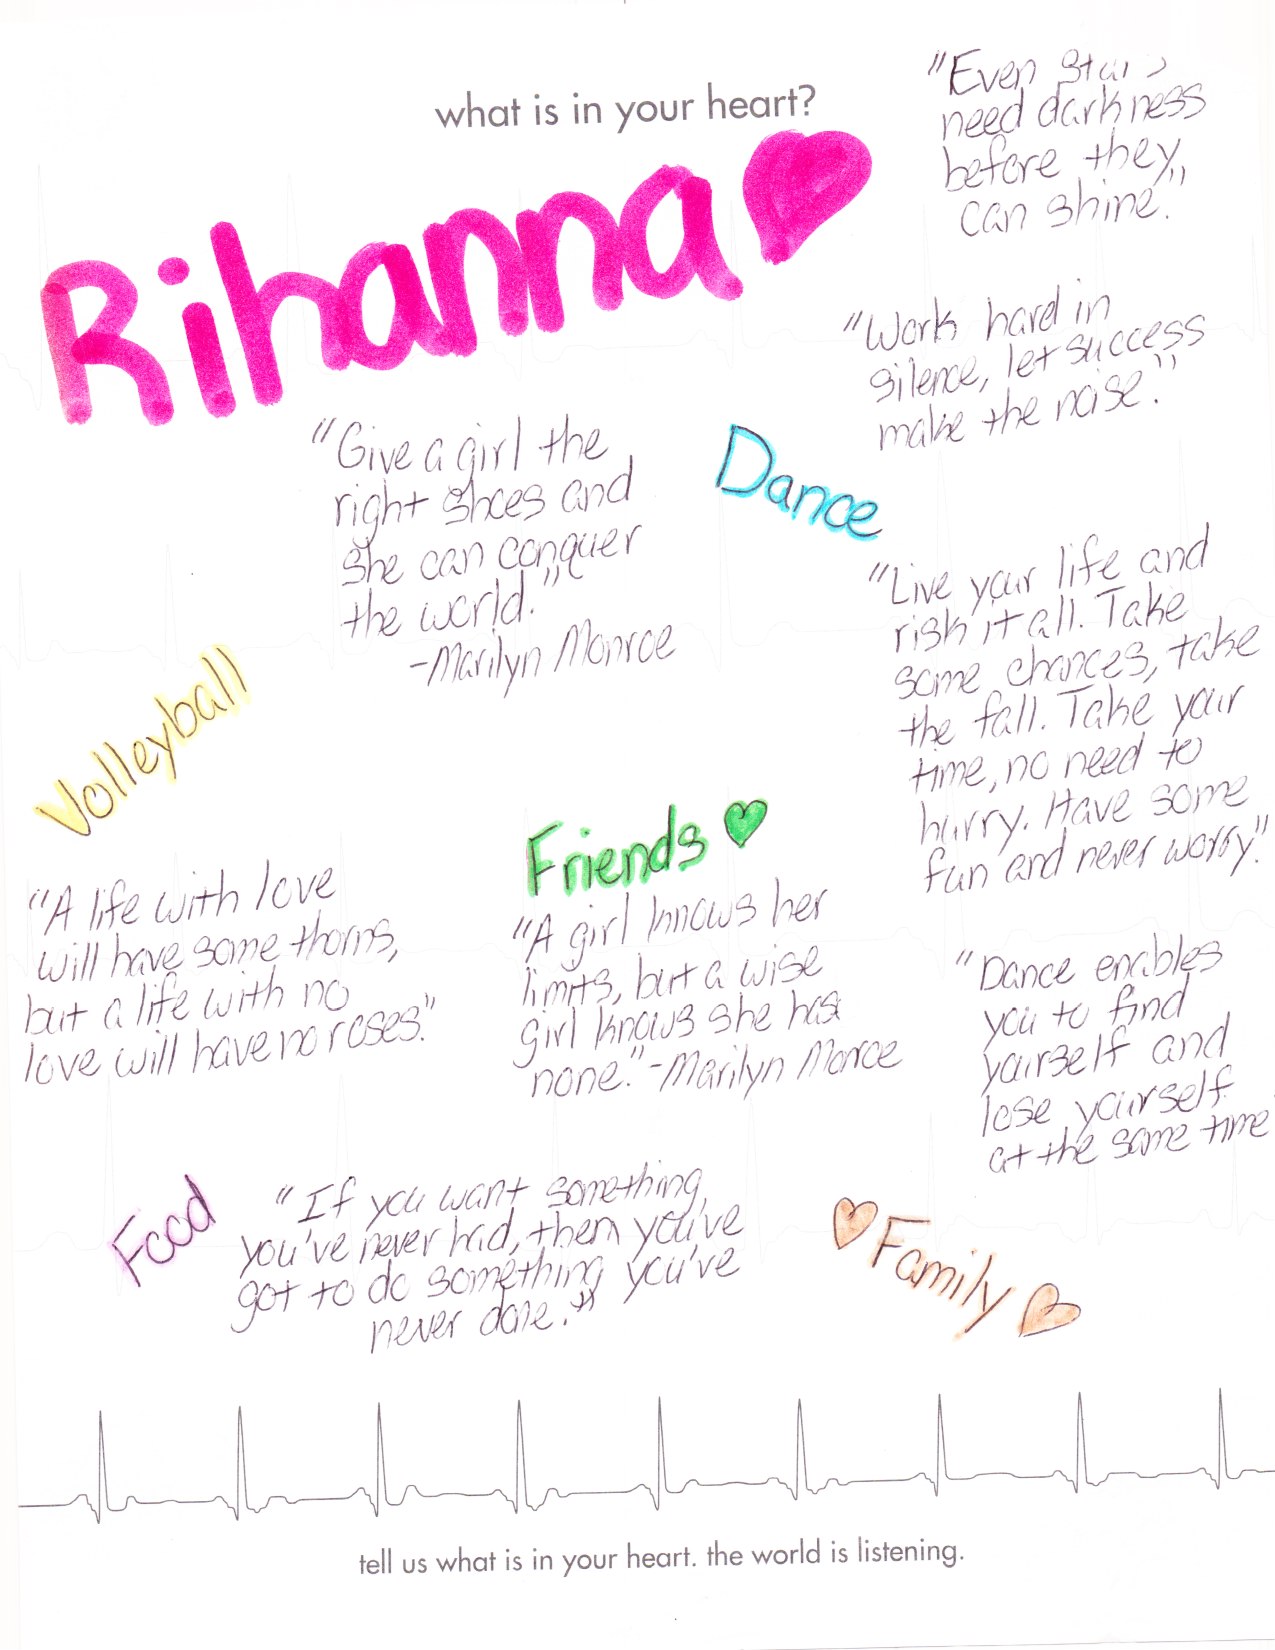 what is in your heart?
Rihanna
"Even stars
need darkness
before they
can shine."
"Work hard in
silence, let success
make the noise."
"Give a girl the
right shoes and
she can conquer
the world."
-Marilyn Monroe
Dance
"Live your life and
risk it all. Take
some chances, take
the fall. Take your
time, no need to
hurry. Have some
fun and never worry."
Volleyball
Friends
"A life with love
will have some thorns,
but a life with no
love will have no roses."
"A girl knows her
limits, but a wise
girl knows she has
none." -Marilyn Monroe
"Dance enables
you to find
yourself and
lose yourself
at the same time
Food
"If you want something
you've never had, then you've
got to do something you've
never done."
Family
tell us what is in your heart. the world is listening.